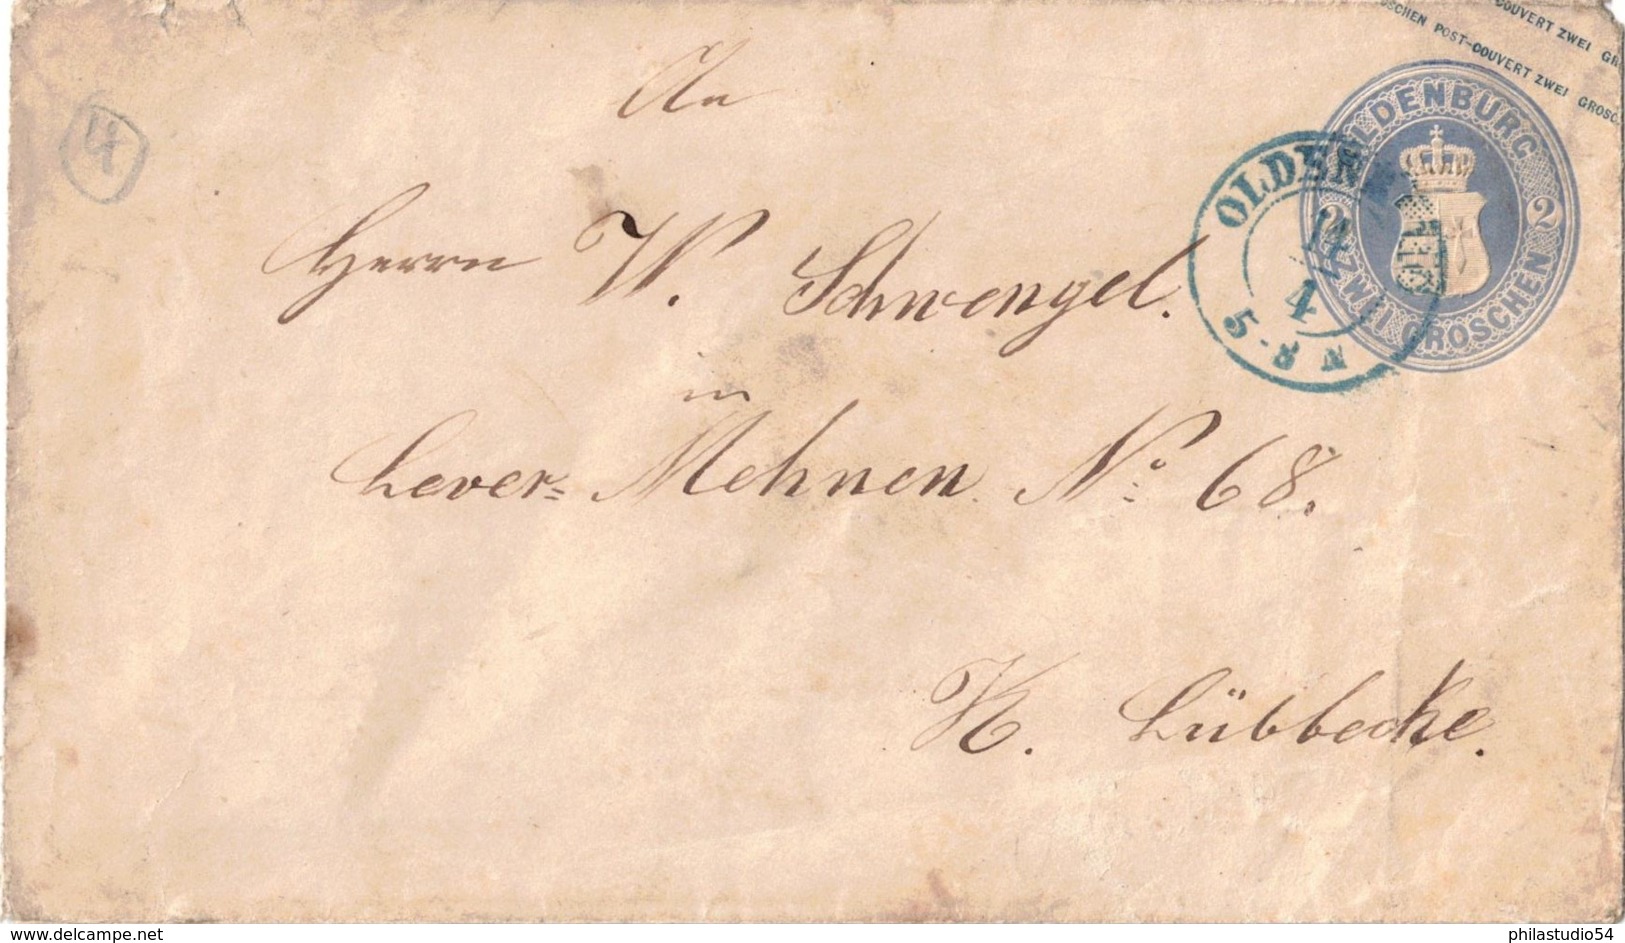 COUVERT ZWEI GR
OSCHEN POST-COUVERT ZWEI GROSC
OLDENBURG
2 2
ZWEI GROSCHEN
OLDENBURG
14
4
5-8 N
An
Herrn W. Schwengel.
in
Lever= Mehnen No: 68.
K. Lübbecke.
www.delcampe.net
philastudio54